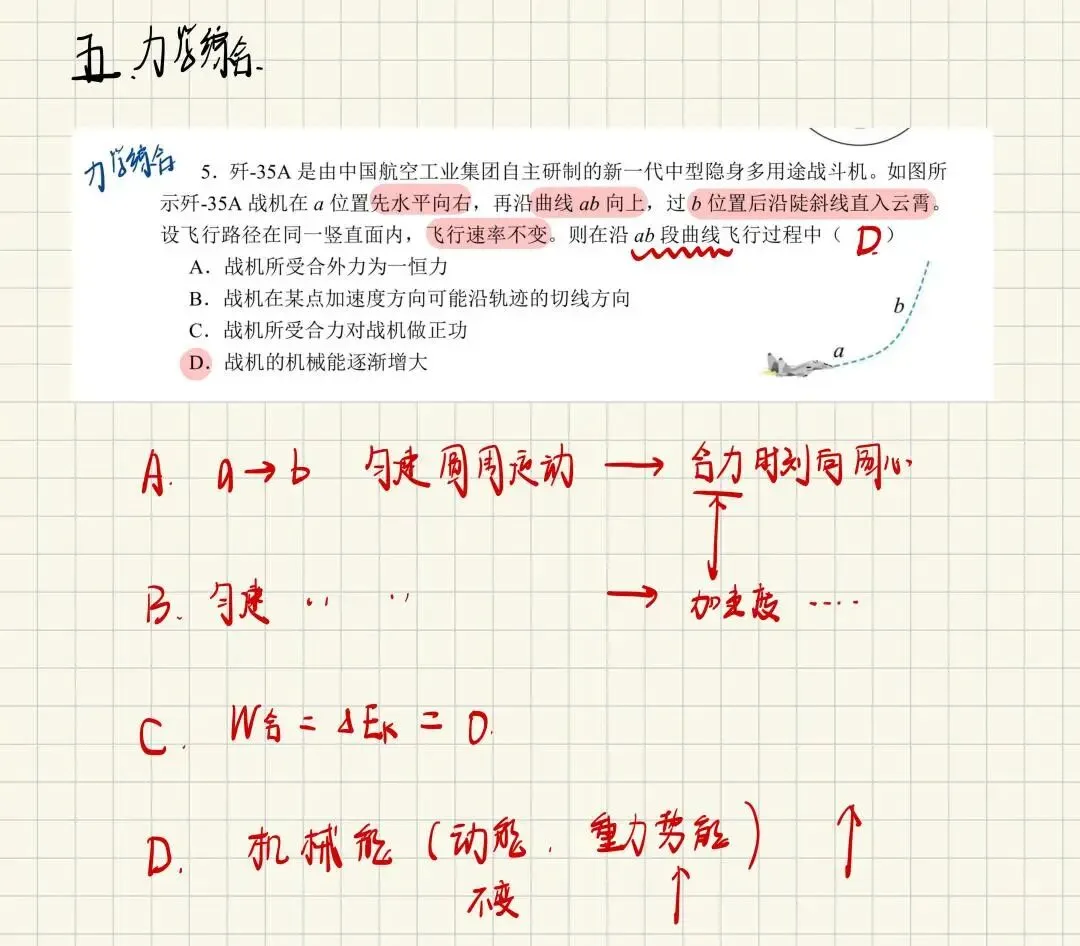 五.力学综合.
力学综合
5．歼-35A 是由中国航空工业集团自主研制的新一代中型隐身多用途战斗机。如图所
示歼-35A 战机在 a 位置先水平向右，再沿曲线 ab 向上，过 b 位置后沿陡斜线直入云霄。
设飞行路径在同一竖直面内，飞行速率不变。则在沿 ab 段曲线飞行过程中（ D ）
A．战机所受合外力为一恒力
B．战机在某点加速度方向可能沿轨迹的切线方向
C．战机所受合力对战机做正功
D．战机的机械能逐渐增大
b
a
A. a→b 匀速圆周运动 → 合力时刻向圆心
B. 匀速 ‥ ‥ → 加速度 ····
C. W合 = ΔEk = 0.
D. 机械能（动能．重力势能）↑
不变 ↑